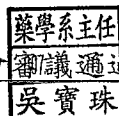 藥學系主任
審議通過
吳寶珠